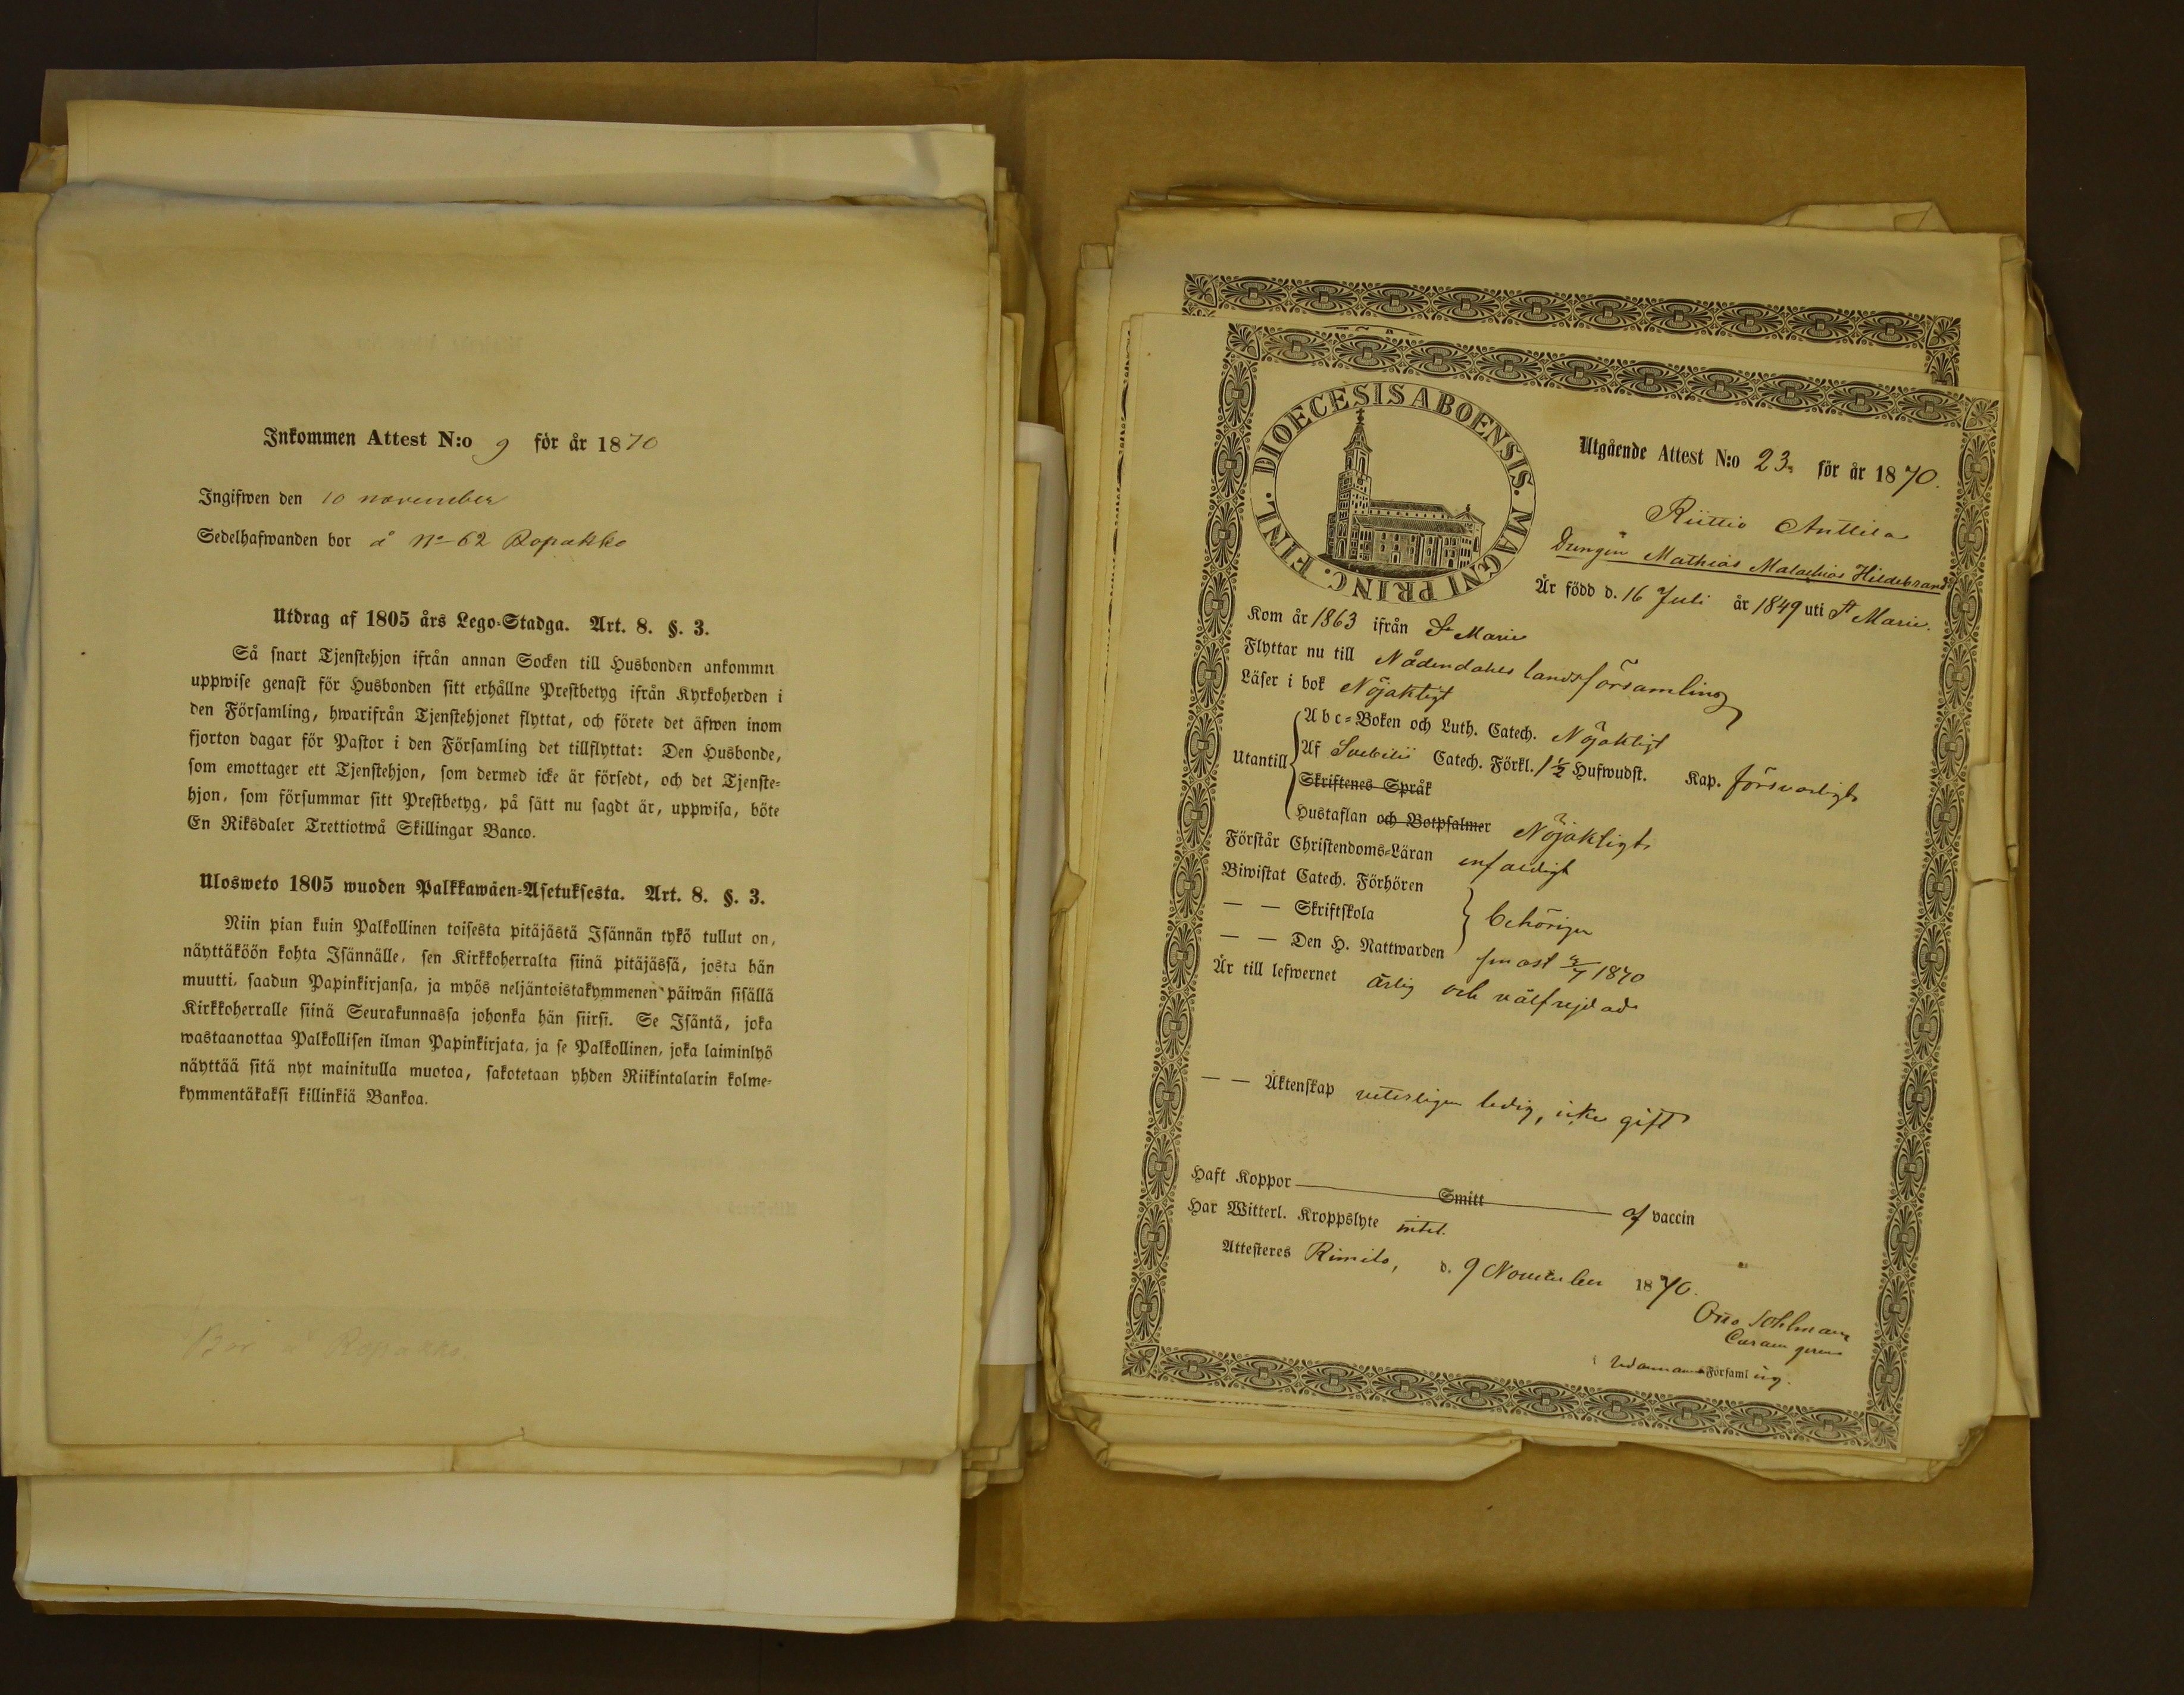 Inkommen Attest N:o 9 för år 1870
Ingifwen den 10 november
Sedelhafwanden bor å No 62 Ropakko
Utdrag af 1805 års Lego-Stadga. Art. 8. §. 3.
Så snart Tjenstehjon ifrån annan Socken till Husbonden ankommit
uppwise genast för Husbonden sitt erhållne Prestbetyg ifrån Kyrkoherden i
den Församling, hwarifrån Tjenstehjonet flyttat, och förete det äfwen inom
fjorton dagar för Pastor i den Församling det tillflyttat: Den Husbonde,
som emottager ett Tjenstehjon, som dermed icke är försedt, och det Tjenste-
hjon, som försummar sitt Prestbetyg, på sätt nu sagdt är, uppwisa, böte
En Riksdaler Trettiotwå Skillingar Banco.
Ulosweto 1805 wuoden Palkkawäen-Asetuksesta. Art. 8. §. 3.
Niin pian kuin Palkollinen toisesta pitäjästä Isännän tykö tullut on,
näyttäköön kohta Isännälle, sen Kirkkoherralta siinä pitäjässä, josta hän
muutti, saadun Papinkirjansa, ja myös neljäntoistakymmenen päiwän sisällä
Kirkkoherralle siinä Seurakunnassa johonka hän siirsi. Se Isäntä, joka
wastaanottaa Palkollisen ilman Papinkirjata, ja se Palkollinen, joka laiminlyö
näyttää sitä nyt mainitulla muotoa, sakotetaan yhden Riikintalarin kolme-
kymmentäkaksi killinkiä Bankoa.
Bor å Ropakko.
DIOECESIS ABOENSIS. MAGNI PRINC. FINL.
Utgående Attest N:o 23. för år 1870.
Riittio Anttila
Drengen Mathias Malachias Hildebrand
Är född d. 16 Juli år 1849 uti St Marie.
Kom år 1863 ifrån St Marie
Flyttar nu till Nådendahls landsförsamling
Läser i bok Nöjaktigt
Utantill
Abc-Boken och Luth. Catech. Nöjaktigt
Af Svebilii Catech. Förkl. 1 1/2 Hufwudst. Kap. försvarligt
Skriftenes Språk
Hustaflan och Botpsalmer Nöjaktigt
Förstår Christendoms-Läran enfaldigt
Biwistat Catech. Förhören
— — Skriftskola behörigen
— — Den H. Nattwarden senast 1870
Är till lefwernet ärlig och välfrejdad
— — Äktenskap veterligen ledig, icke gift
Haft Koppor Smitt af vaccin
Har Witterl. Kroppslyte intet.
Attesteres Rimito, d. 9 November 1870.
Otto Sohlman
Curam gerens
Församling.